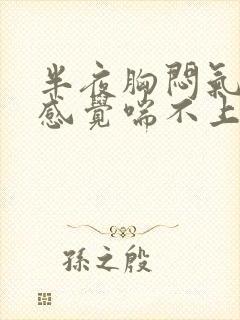 半夜胸悶氣
感覺喘不上
孫之殷